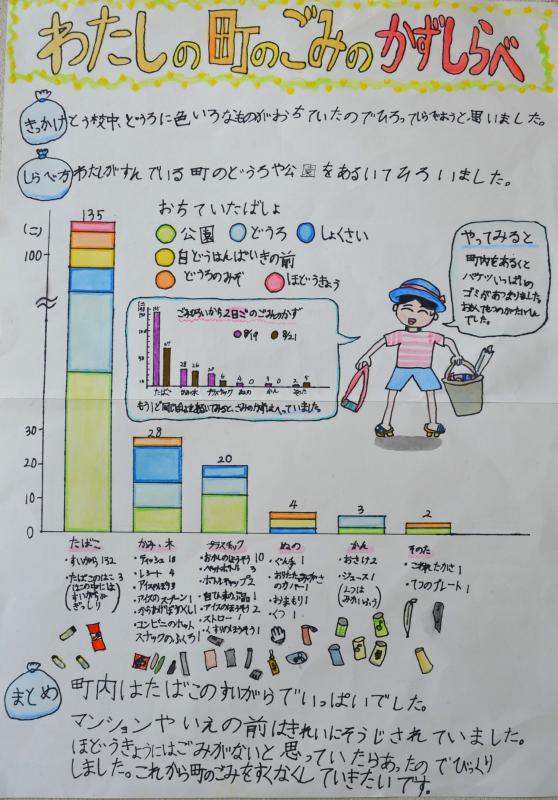 わたしの町のごみのかずしらべ
きっかけ
とう校中、どうろに色いろなものがおちていたのでひろってしらべようと思いました。
しらべ方
わたしがすんでいる町のどうろや公園をあるいてひろいました。
(こ)
135
100
30
20
10
0
おちていたばしょ
公園 どうろ しょくさい
自どうはんばいきの前
どうろのみぞ ほどうきょう
2日ごのごみのかず
8/19 8/21
たばこ かみ・木 プラスチック ぬの かん その他
やってみると
町内をあるくと
バケツいっぱいの
ゴミがあつまりました
28
20
4
3
2
たばこ
・すいがら 132
・たばこのはこ 3
かみ・木
・ティッシュ 18
・レシート 4
コンビニのホット
スナックのふくろ 1
プラスチック
・おかしのほうそう 10
・ペットボトル 3
・ボトルキャップ 2
・アイスのほうそう 2
・ストロー 1
・くすりのほうそう 1
ぬの
・ぐん手 1
・おりたたみがさ
のカバー 1
・おまもり 1
・くつ 1
かん
・おさけ 2
・ジュース 1
その他
・てつのプレート 1
まとめ
町内はたばこのすいがらでいっぱいでした。
マンションやいえの前はきれいにそうじされていました。
ほどうきょうにはごみがないと思っていたらあったのでびっくり
しました。これから町のごみをすくなくしていきたいです。